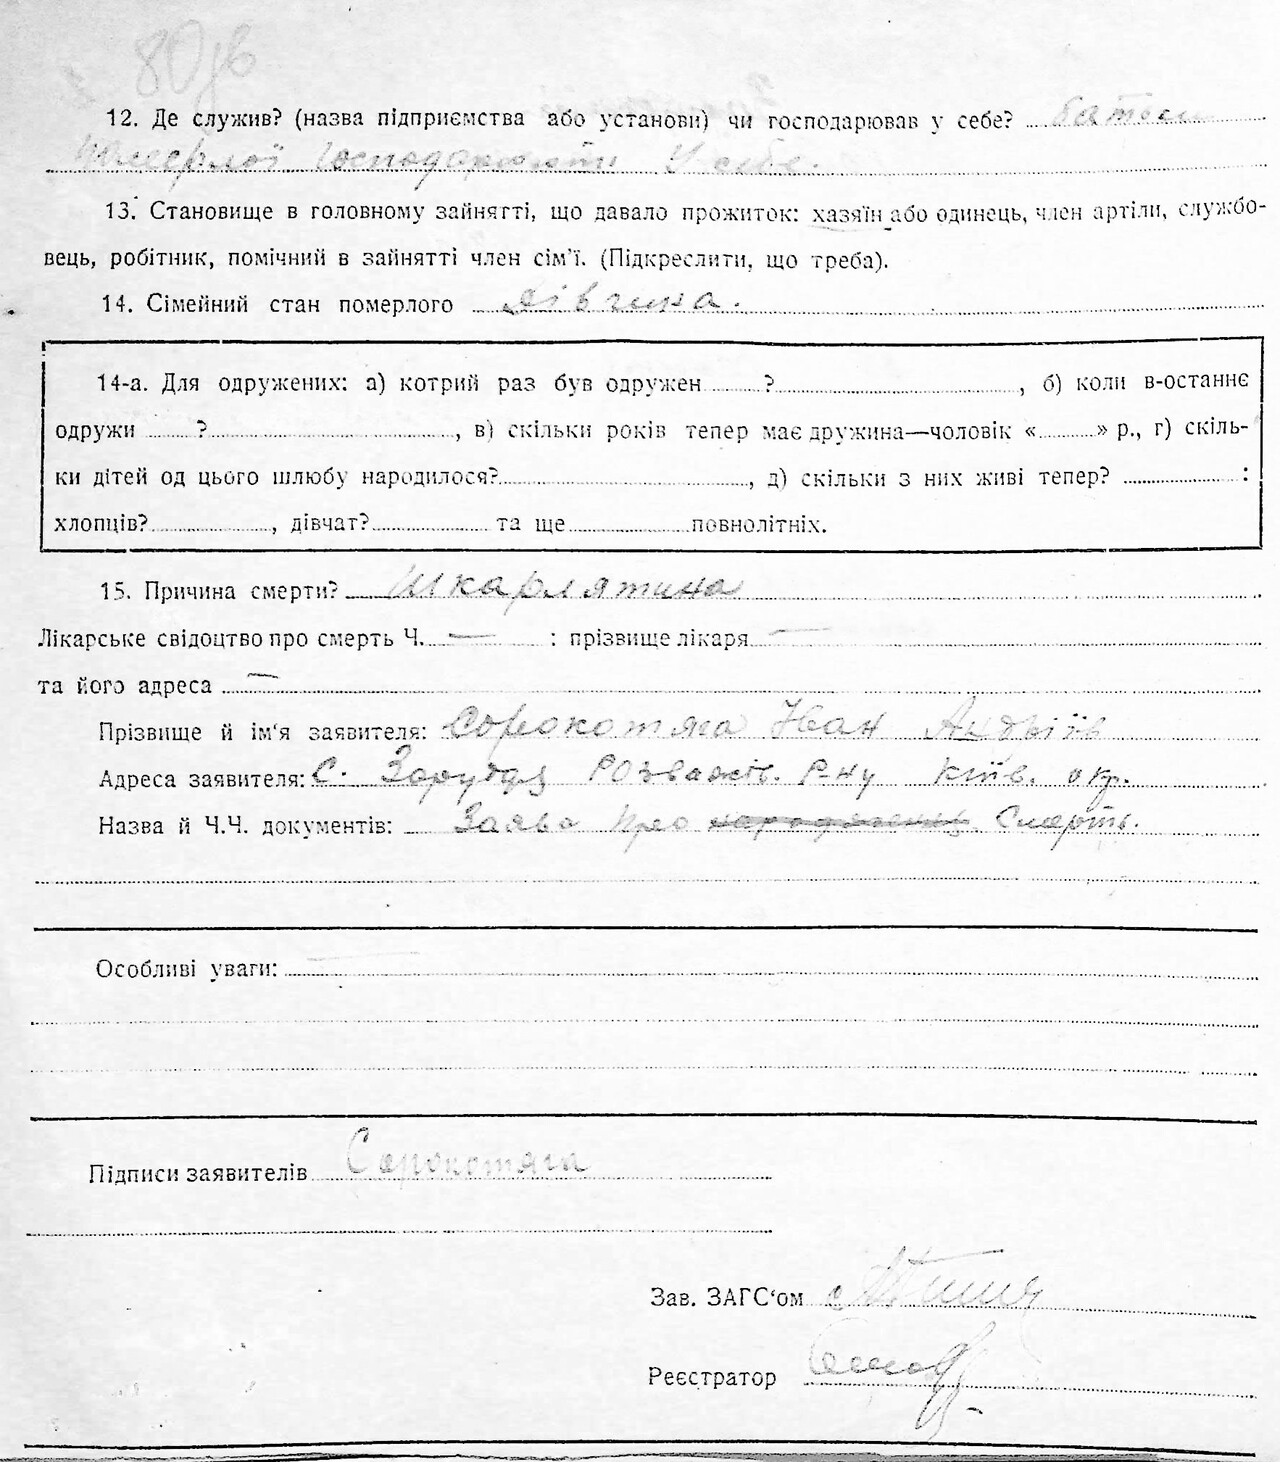 80 зв
12. Де служив? (назва підприємства або установи) чи господарював у себе? батьки
померлої господарюють у себе.
13. Становище в головному зайнятті, що давало прожиток: хазяїн або одинець, член артіли, службо-
вець, робітник, помічний в зайнятті член сім'ї. (Підкреслити, що треба).
14. Сімейний стан померлого дівчина.
14-а. Для одружених: а) котрий раз був одружен ? , б) коли в-останнє
одружи ? , в) скільки років тепер має дружина—чоловік « » р., г) скіль-
ки дітей од цього шлюбу народилося? , д) скільки з них живі тепер? :
хлопців? , дівчат? та ще повнолітніх.
15. Причина смерти? Шкарлятина
Лікарське свідоцтво про смерть Ч. — : прізвище лікаря —
та його адреса —
Прізвище й ім'я заявителя: Сорокотяга Іван Андріїв
Адреса заявителя: С. Заруддя Розважів. Р-ну Київ. окр.
Назва й Ч.Ч. документів: Заява про народження Смерть.
Особливі уваги: —
Підписи заявителів Сорокотяга
Зав. ЗАГС'ом
Реєстратор